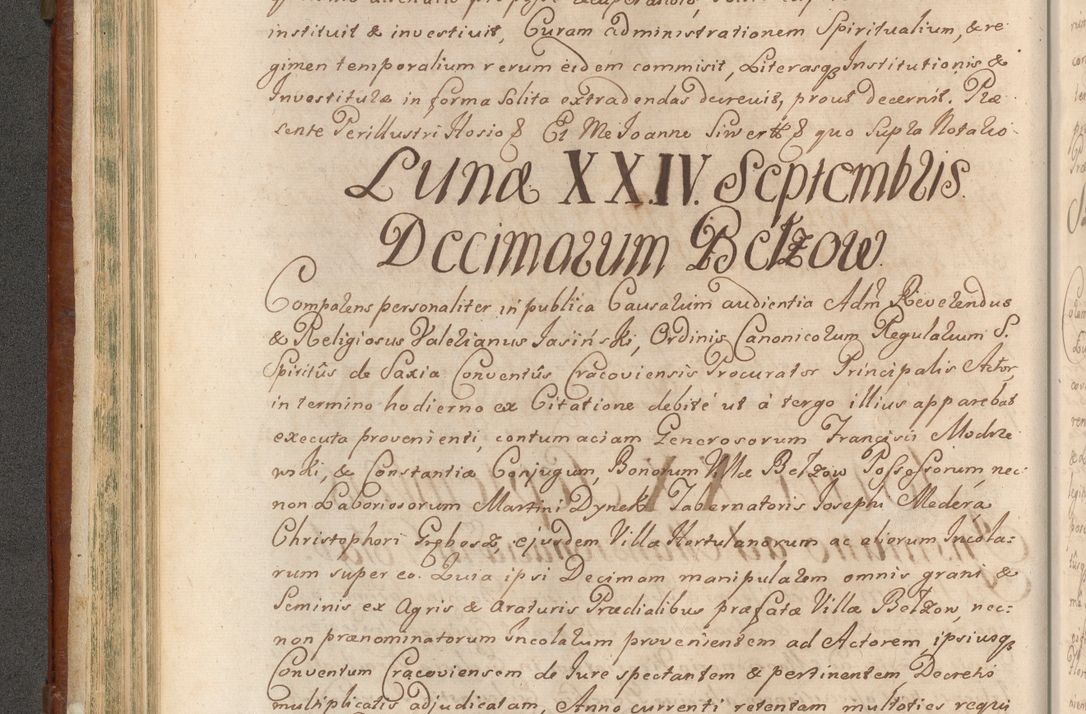 instituit & investivit, Curam administrationem Spiritualium, & re
gimen temporalium rerum eidem commisit, Literasq Institutionis &
Investituræ in forma solita extradendas decrevit, prout decernit. Præ
sente Perillustri Hosio & Et Me Joanne Siwert & quo supra Notario
Lunæ XXIV. Septembris.
Decimarum Betzow.
Comparens personaliter in publica Causarum audientia Adm Reverendus
& Religiosus Valerianus Jasiński, Ordinis Canonicorum Regularium S.
Spiritûs de Saxia Conventûs Cracoviensis Procurator Principalis Actor,
in termino hodierno ex Citatione debité ut à tergo illius apparebat
executa provenienti, contumaciam Generosorum Francisci Modrze
wski, & Constantiæ Conjugum, Bonorum Villæ Betzow Possessorum, nec
non Laboriosorum Martini Dynek Tabernatoris Josephi Medera
Christophori Grębosz, ejusdem Villæ Hortulanorum ac aliorum Incola=
rum super eo. Quia ipsi Decimam manipularem omnis grani &
Seminis ex Agris & Araturis Prædialibus præfatæ Villæ Betzow, nec=
non prænominatorum Incolarum provenientem ad Actorem, ipsiusq
Conventum Cracoviensem de Jure spectantem & pertinentem, Decreto
multiplicatis adjudicatam, Anno currenti retentam multoties requi